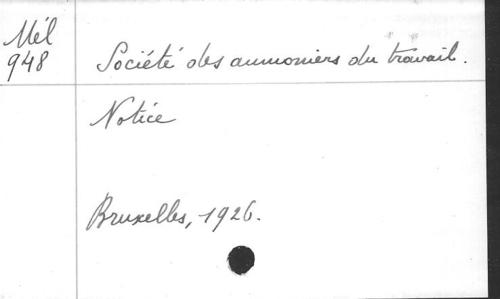 Mél
948
Société des aumoniers du travail.
Notice
Bruxelles, 1926.